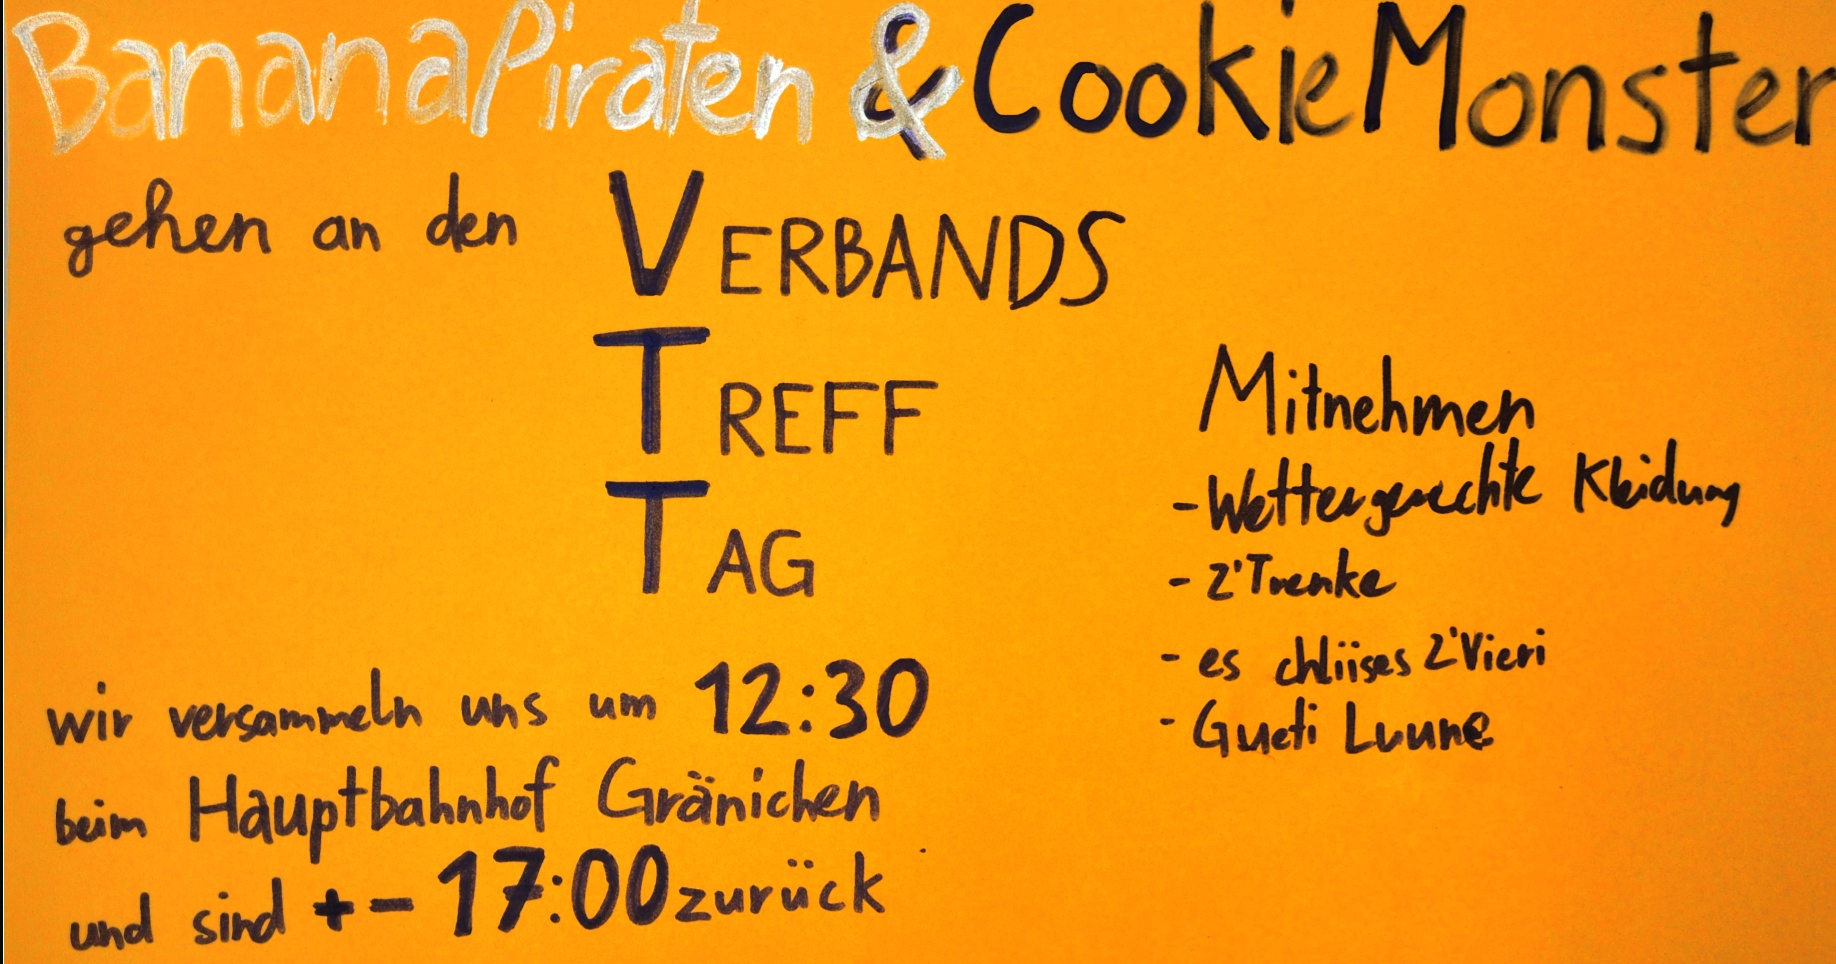 BananaPiraten & CookieMonster
gehen an den VERBANDS
TREFF
TAG
wir versammeln uns um 12:30
beim Hauptbahnhof Gränichen
und sind +- 17:00 zurück
Mitnehmen
- Wettergerechte Kleidung
- z'Trenke
- es chliises Z'Vieri
- Gueti Luune